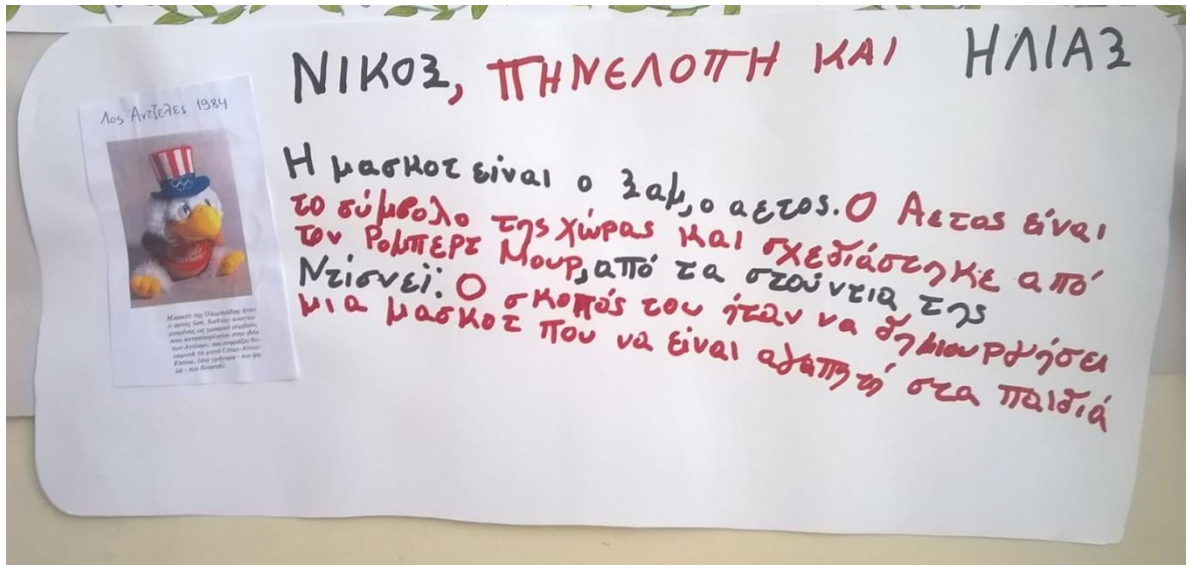 ΝΙΚΟΣ, ΠΗΝΕΛΟΠΗ ΚΑΙ ΗΛΙΑΣ
Λος Άντζελες 1984
Η μασκοτ είναι ο Σαμ, ο αετος. Ο Αετος είναι
το σύμβολο της χώρας και σχεδιάστηκε από
τον Ρομπερτ Μουρ, από τα στούντια της
Ντίσνεϊ. Ο σκοπός του ήταν να δημιουργήσει
μια μασκοτ που να είναι αγαπητή στα παιδιά
Μασκότ της Ολυμπιάδας ήταν
ο αετός Sam,